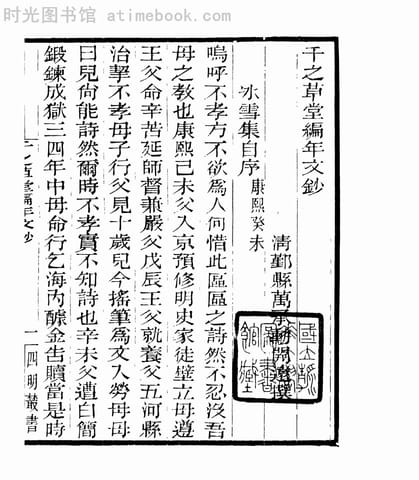 时光图书馆 atimebook.com
千之草堂編年文鈔
清鄞縣萬承勳開遠撰
冰雪集自序康熙癸未
嗚呼不孝方不欲爲人何惜此區區之詩然不忍沒吾
母之敎也康熙己未父入京預修明史家徒壁立母遵
王父命辛苦延師督兼嚴父戊辰王父就養父五河縣
治挈不孝母子行父見十歲兒今搖筆爲文入勞母母
曰兒尙能詩然爾時不孝實不知詩也辛未父遭白簡
鍛鍊成獄三四年中母命行乞海內醵金告贖當是時
千之草堂編年文鈔
一
四明叢書